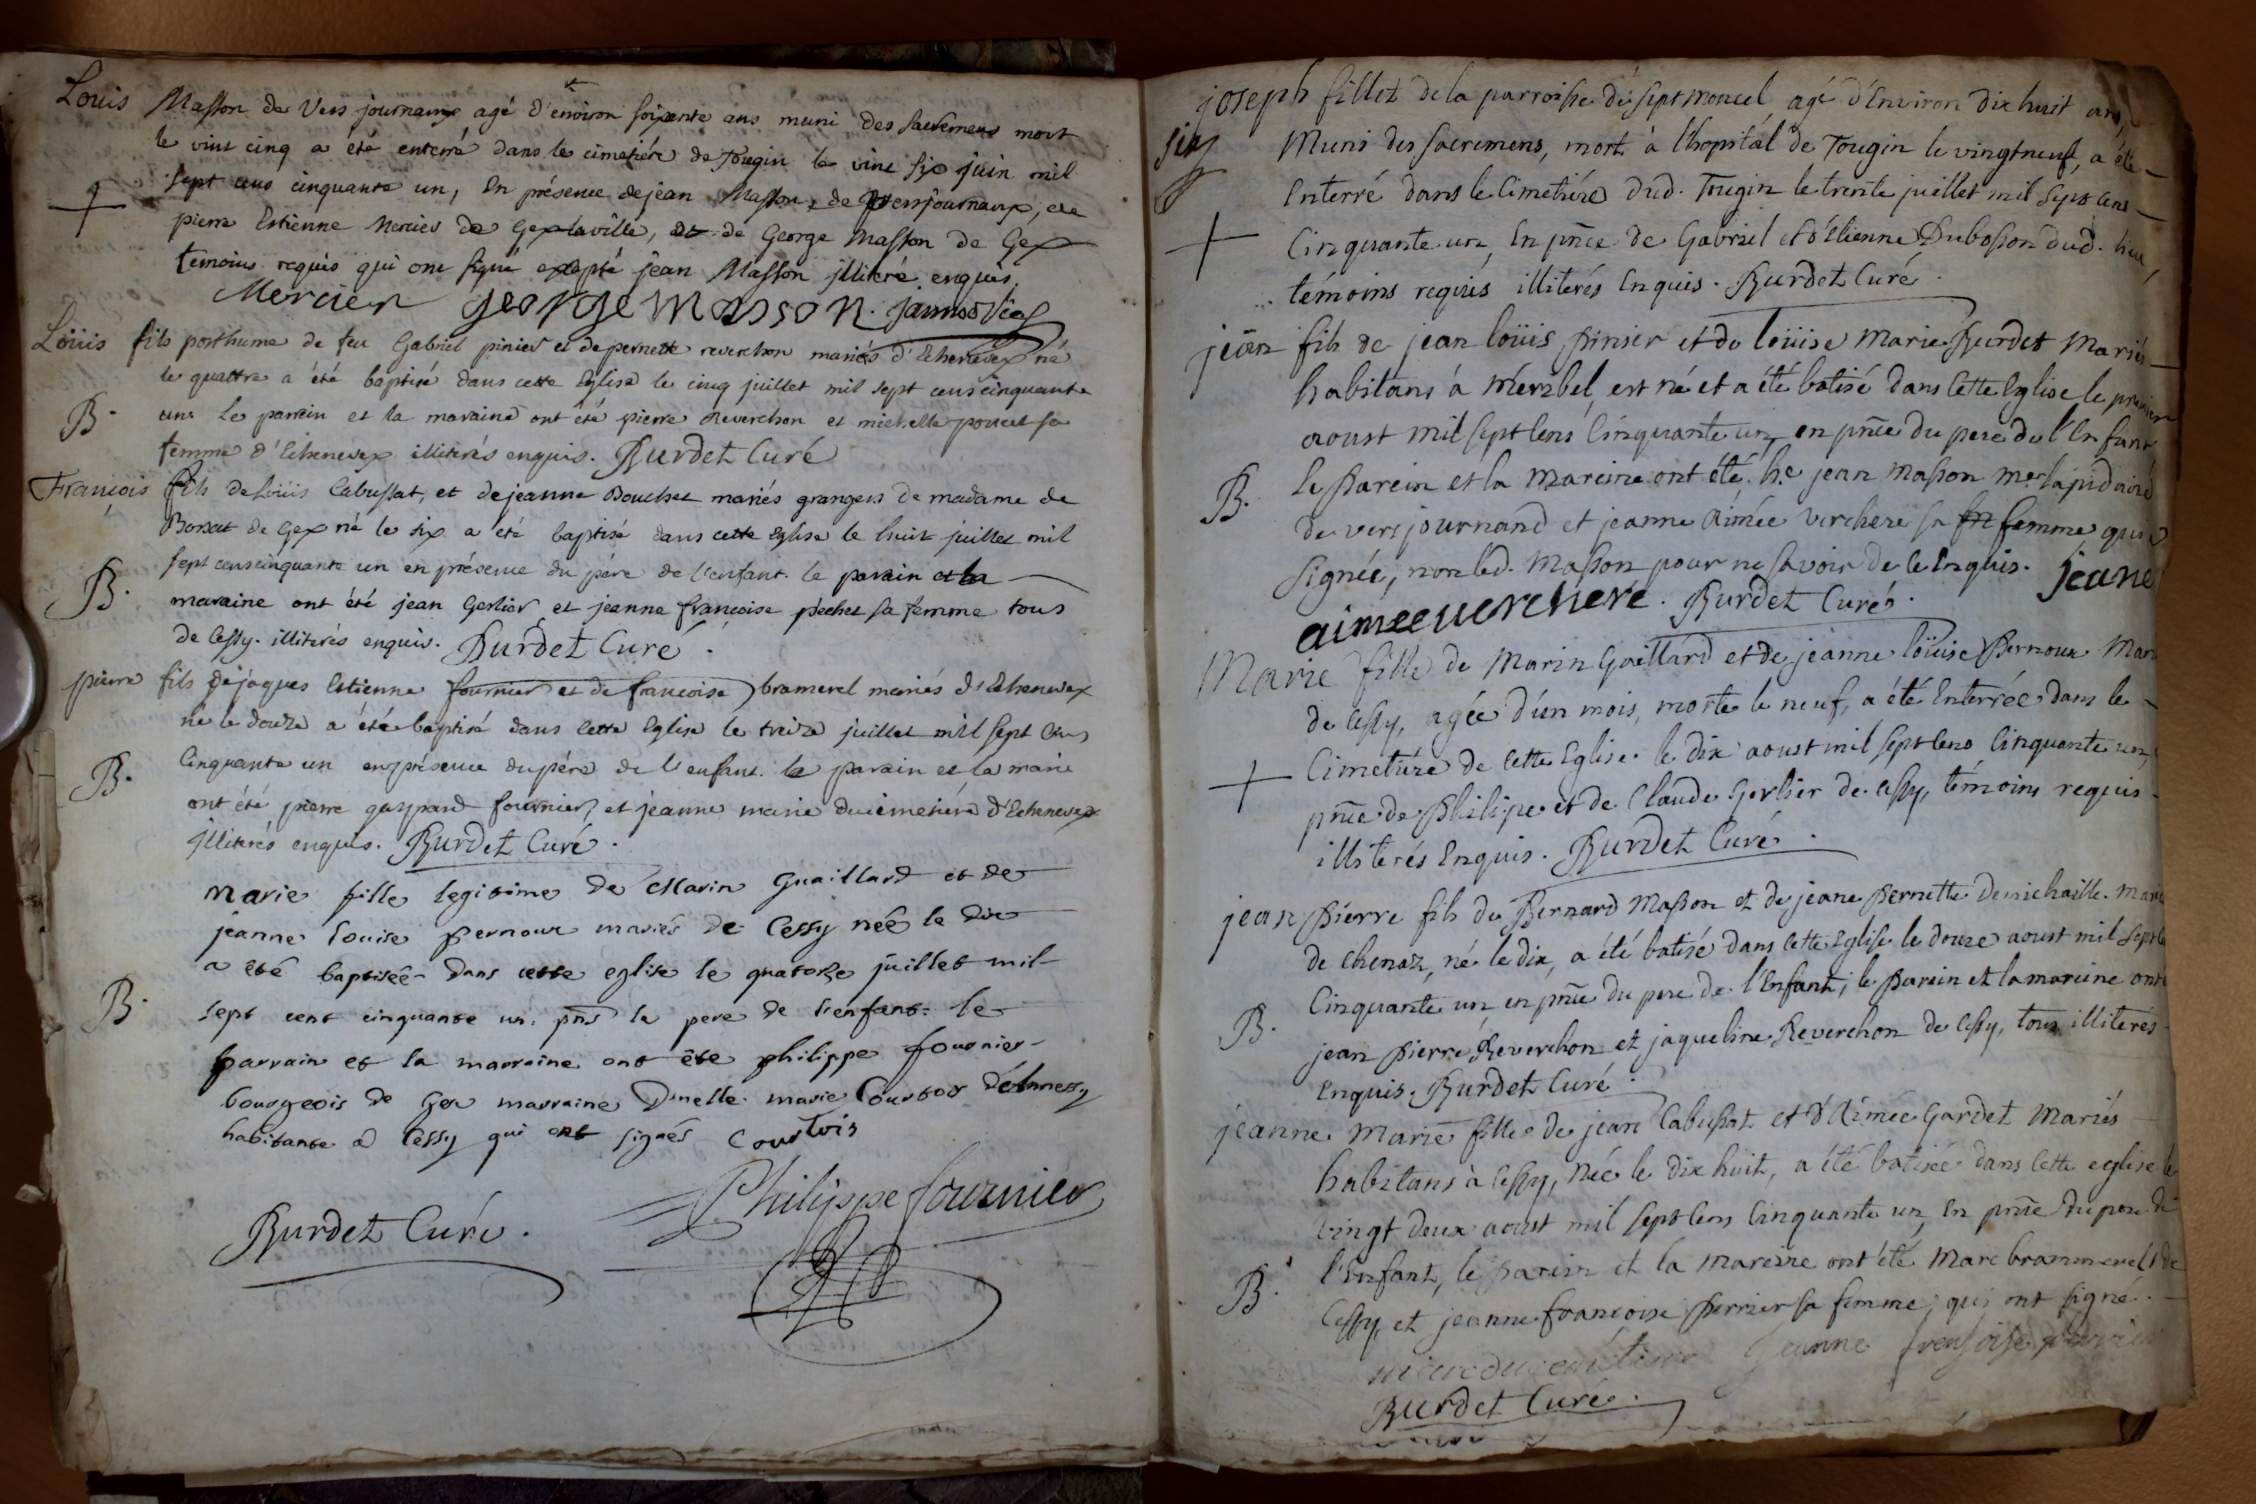 Louis Masson de Vers journaux agé d'environ soixante ans muni des sacremens mort
le vint cinq a été enterré dans le cimetiére de Tougin le vint six juin mil
sept cens cinquante un, En présence de jean Masson, de versjournaux, de
pierre Estienne Mercier de Gex la ville, et de George Masson de Gex
temoins requis qui ont signé excepté jean Masson illiteré enquis.
Mercier George Masson.
Loüis fils posthume de feu Gabriel pinier et de pernette reverchon mariés d'Echenevex né
le quattre a été baptisé dans cette Eglise le cinq juillet mil sept cens cinquante
un. Le parrin et la maraine ont été pierre Reverchon et michelle poncet sa
B.
femme d'Echenevex illiterés enquis. Burdet Curé
François fils de Loüis Cabussat, et de jeanne Bouchet mariés grangers de madame de
Borsat de Gex né le six a été baptisé dans cette Eglise le huit juillet mil
sept cens cinquante un en présence du pére de l'enfant. le parain et la
B.
maraine ont été jean Gerlier et jeanne françoise péchet sa femme tous
de Cessy. illiterés enquis. Burdet Curé.
pierre fils de jaques Estienne fournier et de francoise bramerel mariés d'Echenevex
né le douze a été baptisé dans cette Eglise le treize juillet mil sept cens
B.
Cinquante un en présence du pére de l'enfant. le parain et la marie
ont été pierre gaspard fournier, et jeanne marie ducimetiére d'Echenevex
jlliterés enquis. Burdet Curé.
Marie fille legitime de Marin Guaillard et de
jeanne Louise pernoux mariés de Cessy née le dix
a été baptisée dans cette eglise le quatorze juillet mil
B.
sept cent cinquante un. pñs le pere de l'enfant. le
parrain et la marraine ont été philippe fournier
bourgeois de Gex marraine Dmelle. marie Courtois
habitante a Cessy qui ont signés Courtois
Philippe fournier
Burdet Curé.
joseph fillet de la parroisse de Septmoncel agé d'Environ dix huit ans,
Muni des sacremens, mort à l'hopital de Tougin le vingtneuf, a été
Enterré dans le Cimetiére dud. Tougin le trente juillet mil sept cens
Cinquante un, En pñce de Gabriel et d'Etienne Dubosson dud. lieu,
témoins requis illiterés Enquis. Burdet Curé.
jean fils de jean loüis pinier et de loüise Marie Burdet Mariés
habitans à Mérzbel, est né et a été batisé dans Cette Eglise le premier
aoust mil sept cens Cinquante un, en pñce du pere de l'Enfant
B.
Le Parein et la mareine ont été he. jean Masson Me. lapidaire
de vers journand et jeanne Aimée verchere sa femme qui a
Signée, non led. Masson pour ne savoir de ce Enquis. jeane
aimee verchere. Burdet Curé.
Marie fille de Marin Gaillard et de jeanne loüise Pernoux Mar
de Cessy, agée d'un mois, morte le neuf, a été Enterrée dans le
Cimetiére de Cette Eglise. le dix aoust mil sept cens Cinquante un,
pñce de Philipe et de Claude Gerlier de Cessy, témoins requis
illiterés Enquis. Burdet Curé.
jean Pierre fils de Bernard Masson et de jeane Pernette Denichaille. Marié
de Chenaz, né le dix, a été batisé dans Cette Eglise le douze aoust mil sept
Cinquante un, en pñce du pere de l'Enfant, le Parein et la mareine ont
B.
jean Pierre Reverchon et jaqueline Reverchon de Cessy, tous illiterés
Enquis. Burdet Curé.
jeanne Marie fille de jean Cabussat et d'Aimée Gardet Mariés
habitans à Cessy, Née le dix huit, a été batisée dans Cette eglise le
vingt deux aoust mil sept cens Cinquante un, En pñce du pere de
B.
l'Enfant, le parein et la mareine ont été Marc brammerel de
Cessy, et jeanne francoise Perrier sa femme, qui ont signé.
Jeanne fransoise perrier
Burdet Curé.